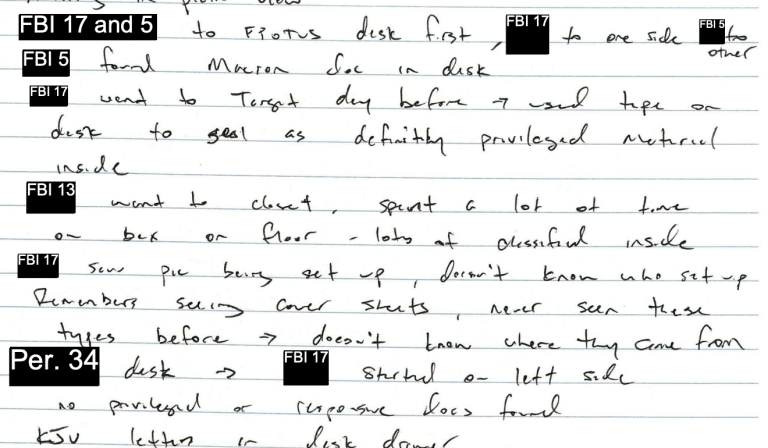 in plain view
FBI 17 and 5 to FPOTUS desk first, FBI 17 to one side FBI 5 to other
FBI 5 found Macron doc in desk
FBI 17 went to Target day before → used tape on
desk to seal as definitely privileged material
inside
FBI 13 went to closet, spent a lot of time
on box on floor - lots of classified inside
FBI 17 saw pic being set up, doesn't know who set up
Remembers seeing cover sheets, never seen these
types before → doesn't know where they came from
Per. 34 desk → FBI 17 started on left side
no privileged or responsive docs found
KJU letters in desk drawer